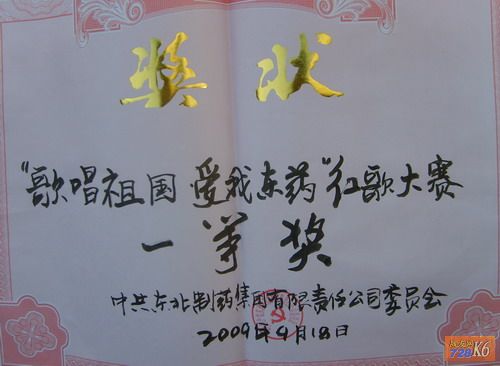 奖状
"歌唱祖国 爱我东药"红歌大赛
一等奖
中共东北制药集团有限责任公司委员会
2009年9月18日
728K6